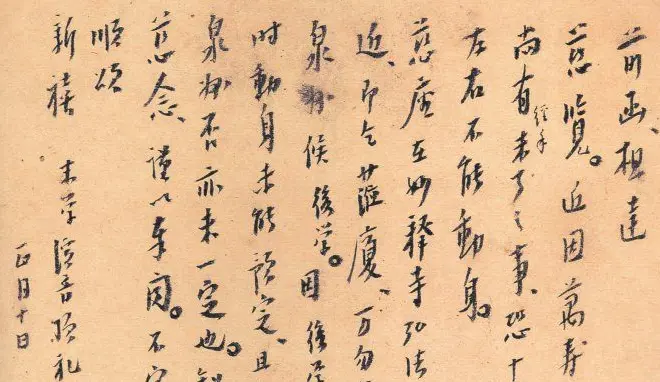 前函,想達
慈覽。近因萬壽
尚有經手未了之事,恐十
左右不能動身。
慈座在妙釋寺弘法
近,即乞蒞廈,万勿
泉州候後学。因後学
时動身未能預定,且
泉州否亦未一定也。
慈念,謹以奉闻。不
順頌
新禧 末学演音頂礼
正月十日